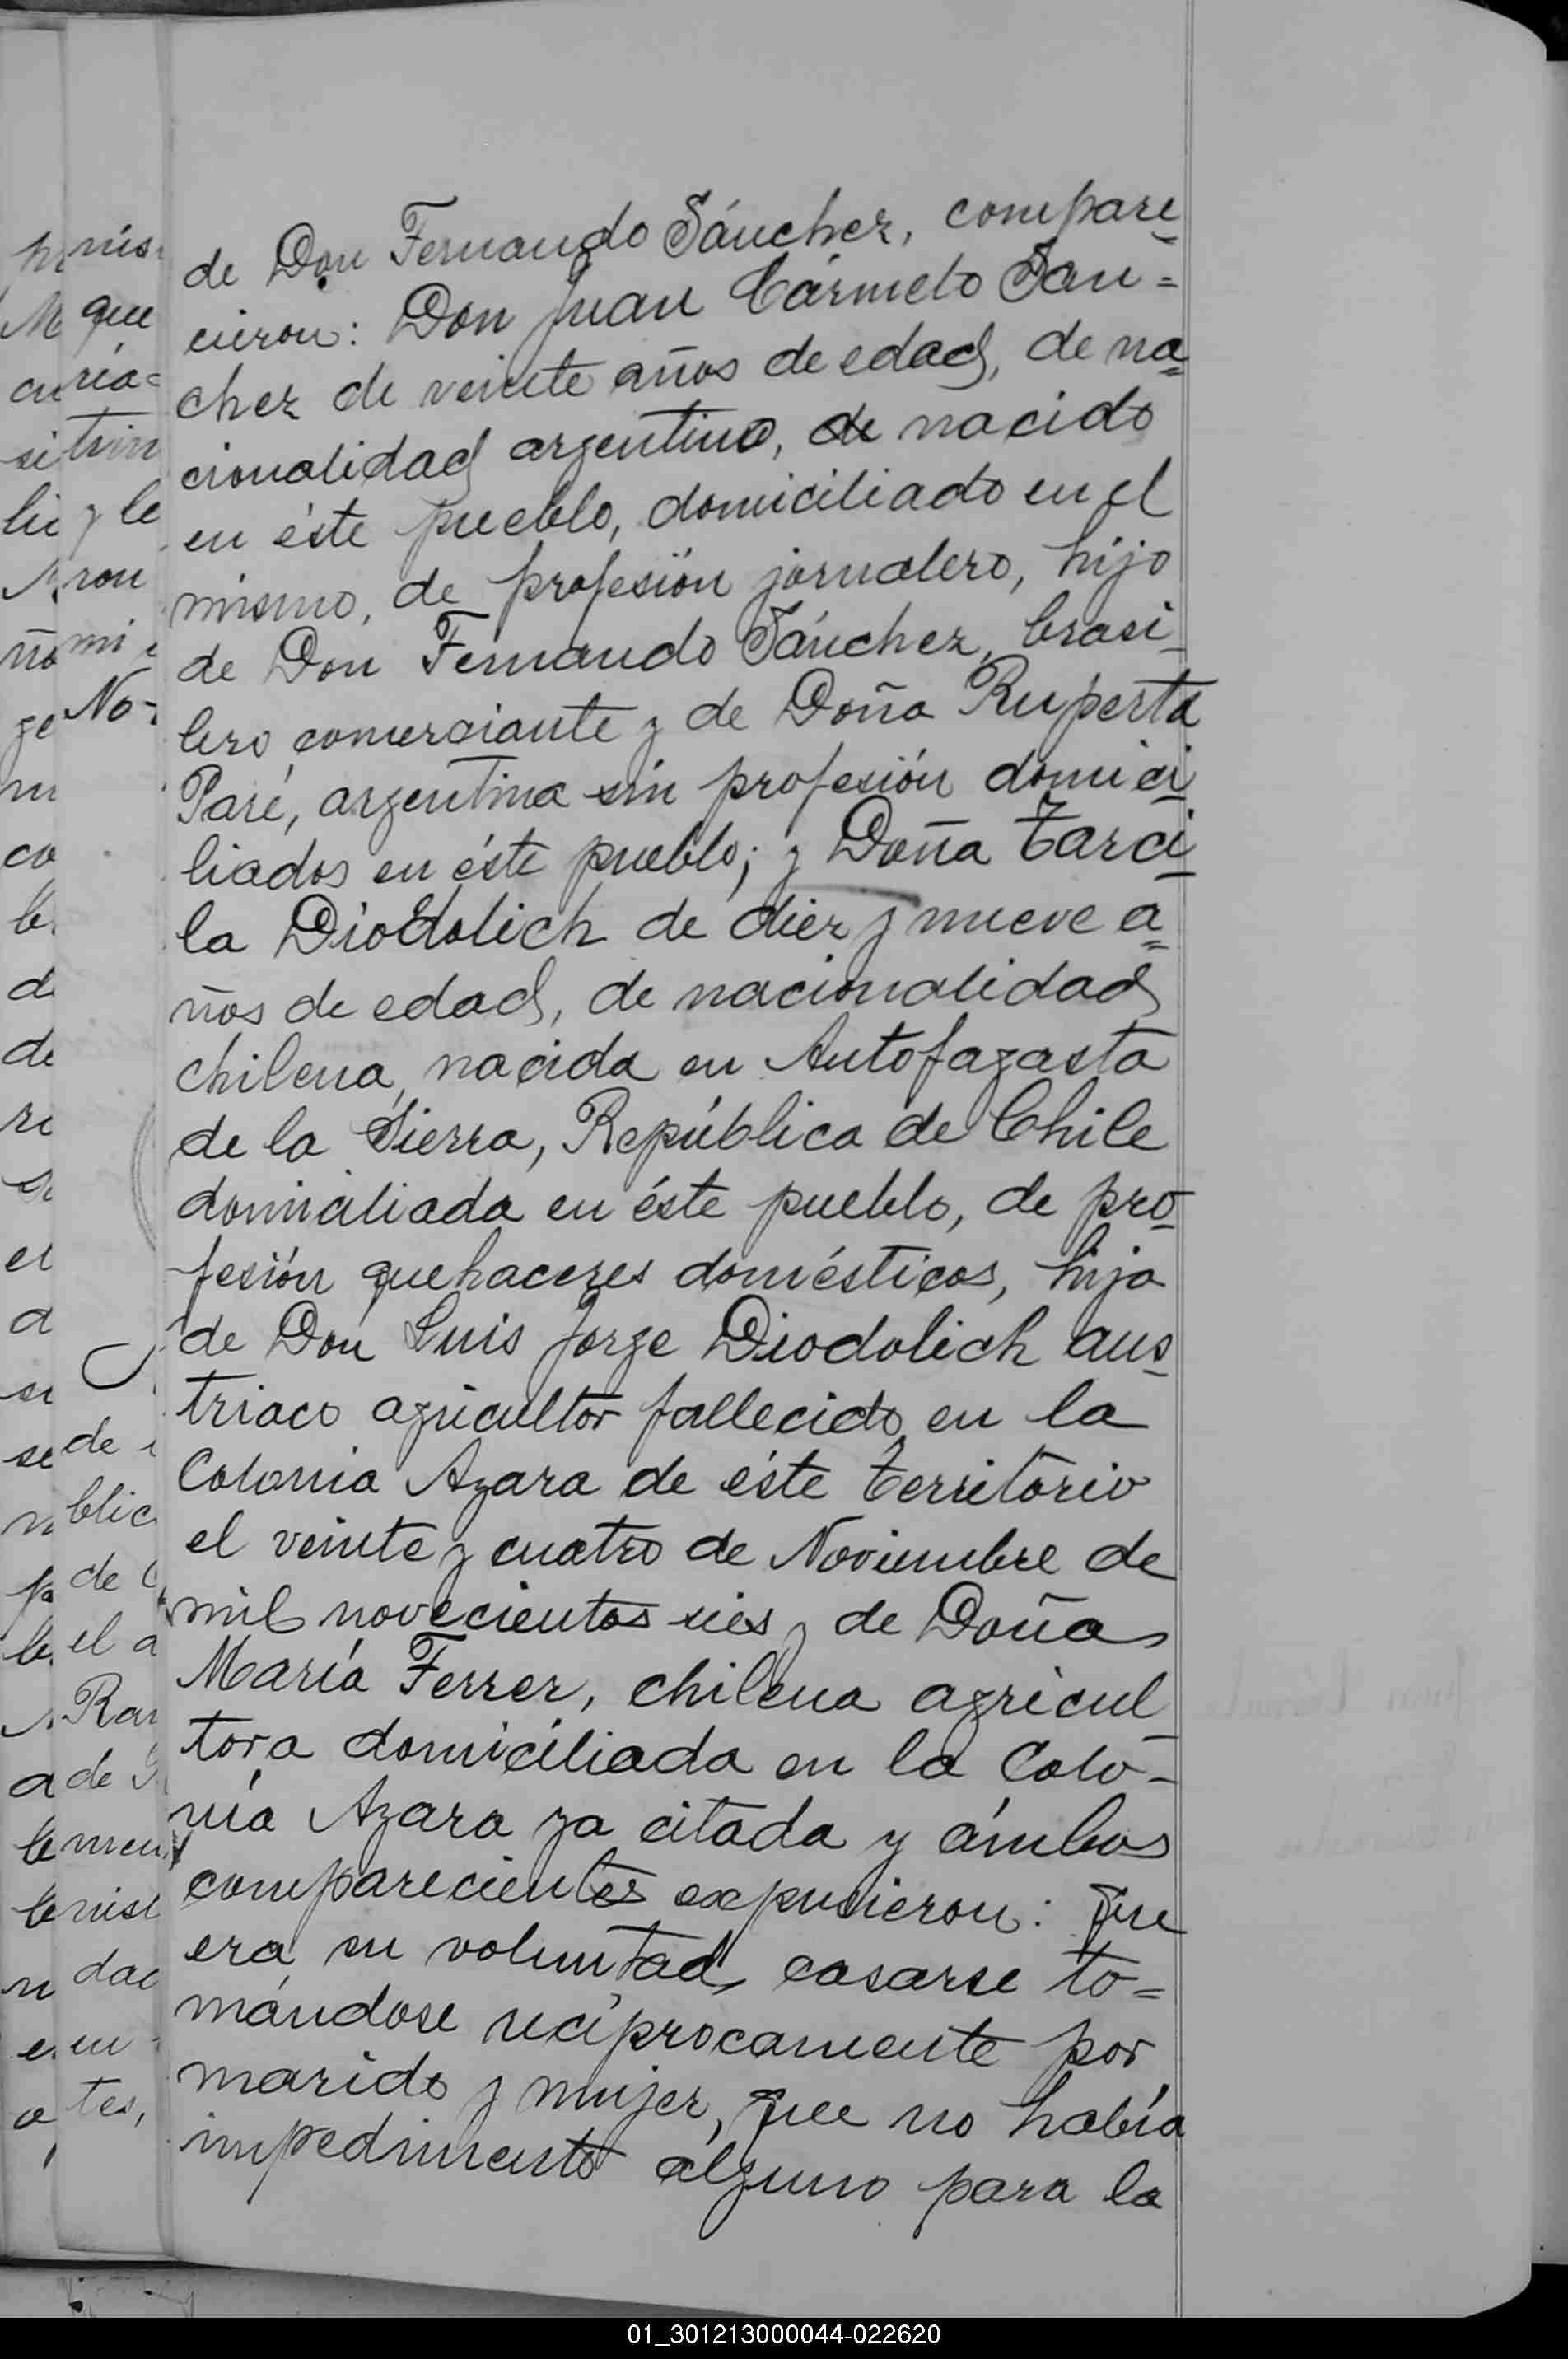 de Don Fernando Sánchez, compare_
cieron: Don Juan Cármelo San=
chez de veinte años de edad, de na=
cionalidad argentino, de nacido
en éste pueblo, domiciliado en el
mismo, de profesión jornalero, hijo
de Don Fernando Sánchez, brasi_
lero comerciante y de Doña Ruperta
Paré, argentina sin profesión domici_
liados en éste pueblo; y Doña Tarci_
la Diodolich de diez y nueve a=
ños de edad, de nacionalidad
chilena, nacida en Antofagasta
de la Sierra, República de Chile
domiciliada en éste pueblo, de pro_
fesión quehaceres domésticos, hija
de Don Luis Jorge Diodolich aus_
triaco agricultor fallecido en la
Colonia Azara de éste territorio
el veinte y cuatro de Noviembre de
mil novecientos seis y de Doña
María Ferrer, chilena agricul_
tora domiciliada en la Colo-
nia Azara ya citada y ámbos
comparecientes expusieron: Que
era su voluntad casarse to=
mándose recíprocamente por
marido y mujer, que no había
impedimento alguno para la
nis
que
ría=
y le
ron
mi
No-
de
blic
de
el a
Ran
de
dad
en
tes,
01_301213000044-022620